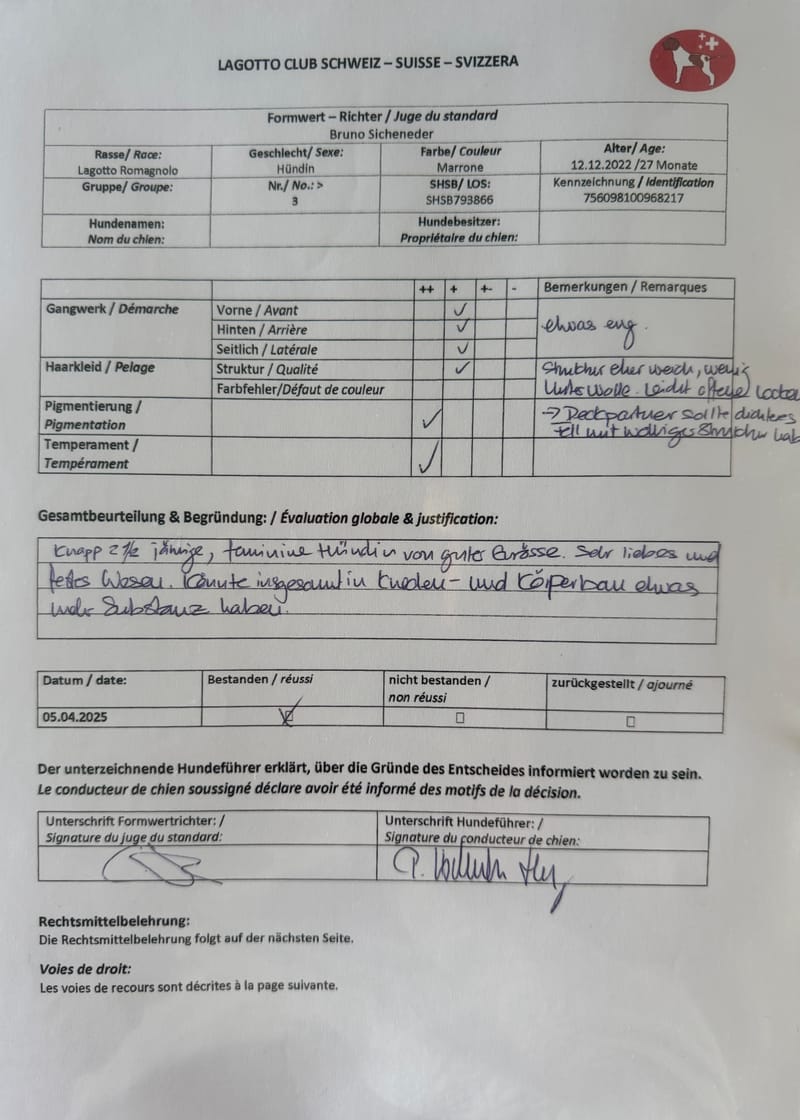 LAGOTTO CLUB SCHWEIZ – SUISSE – SVIZZERA
Formwert – Richter / Juge du standard
Bruno Sicheneder
Rasse/ Race:
Lagotto Romagnolo
Geschlecht/ Sexe:
Hündin
Farbe/ Couleur
Marrone
Alter/ Age:
12.12.2022 /27 Monate
Gruppe/ Groupe:
Nr./ No.: >
3
SHSB/ LOS:
SHSB793866
Kennzeichnung / Identification
756098100968217
Hundenamen:
Nom du chien:
Hundebesitzer:
Propriétaire du chien:
++ + +- - Bemerkungen / Remarques
Gangwerk / Démarche Vorne / Avant ✓
Hinten / Arrière ✓ etwas eng.
Seitlich / Latérale ✓
Haarkleid / Pelage Struktur / Qualité ✓ Struktur eher weich, wenig
Farbfehler/Défaut de couleur Unterwolle. Leicht offene Locken
Pigmentierung /
Pigmentation ✓
→ Deckpartner sollte dichteres
Fell mit wolliger Struktur hab
Temperament /
Tempérament ✓
Gesamtbeurteilung & Begründung: / Évaluation globale & justification:
Knapp 2 ½ jährige, feminine Hündin von guter Grösse. Sehr liebes und
festes Wesen. Könnte insgesamt in Knochen- und Körperbau etwas
mehr Substanz haben.
Datum / date: Bestanden / réussi nicht bestanden /
non réussi
zurückgestellt / ajourné
05.04.2025 ☑ ☐ ☐
Der unterzeichnende Hundeführer erklärt, über die Gründe des Entscheides informiert worden zu sein.
Le conducteur de chien soussigné déclare avoir été informé des motifs de la décision.
Unterschrift Formwertrichter: /
Signature du juge du standard:
Unterschrift Hundeführer: /
Signature du conducteur de chien:
Rechtsmittelbelehrung:
Die Rechtsmittelbelehrung folgt auf der nächsten Seite.
Voies de droit:
Les voies de recours sont décrites à la page suivante.